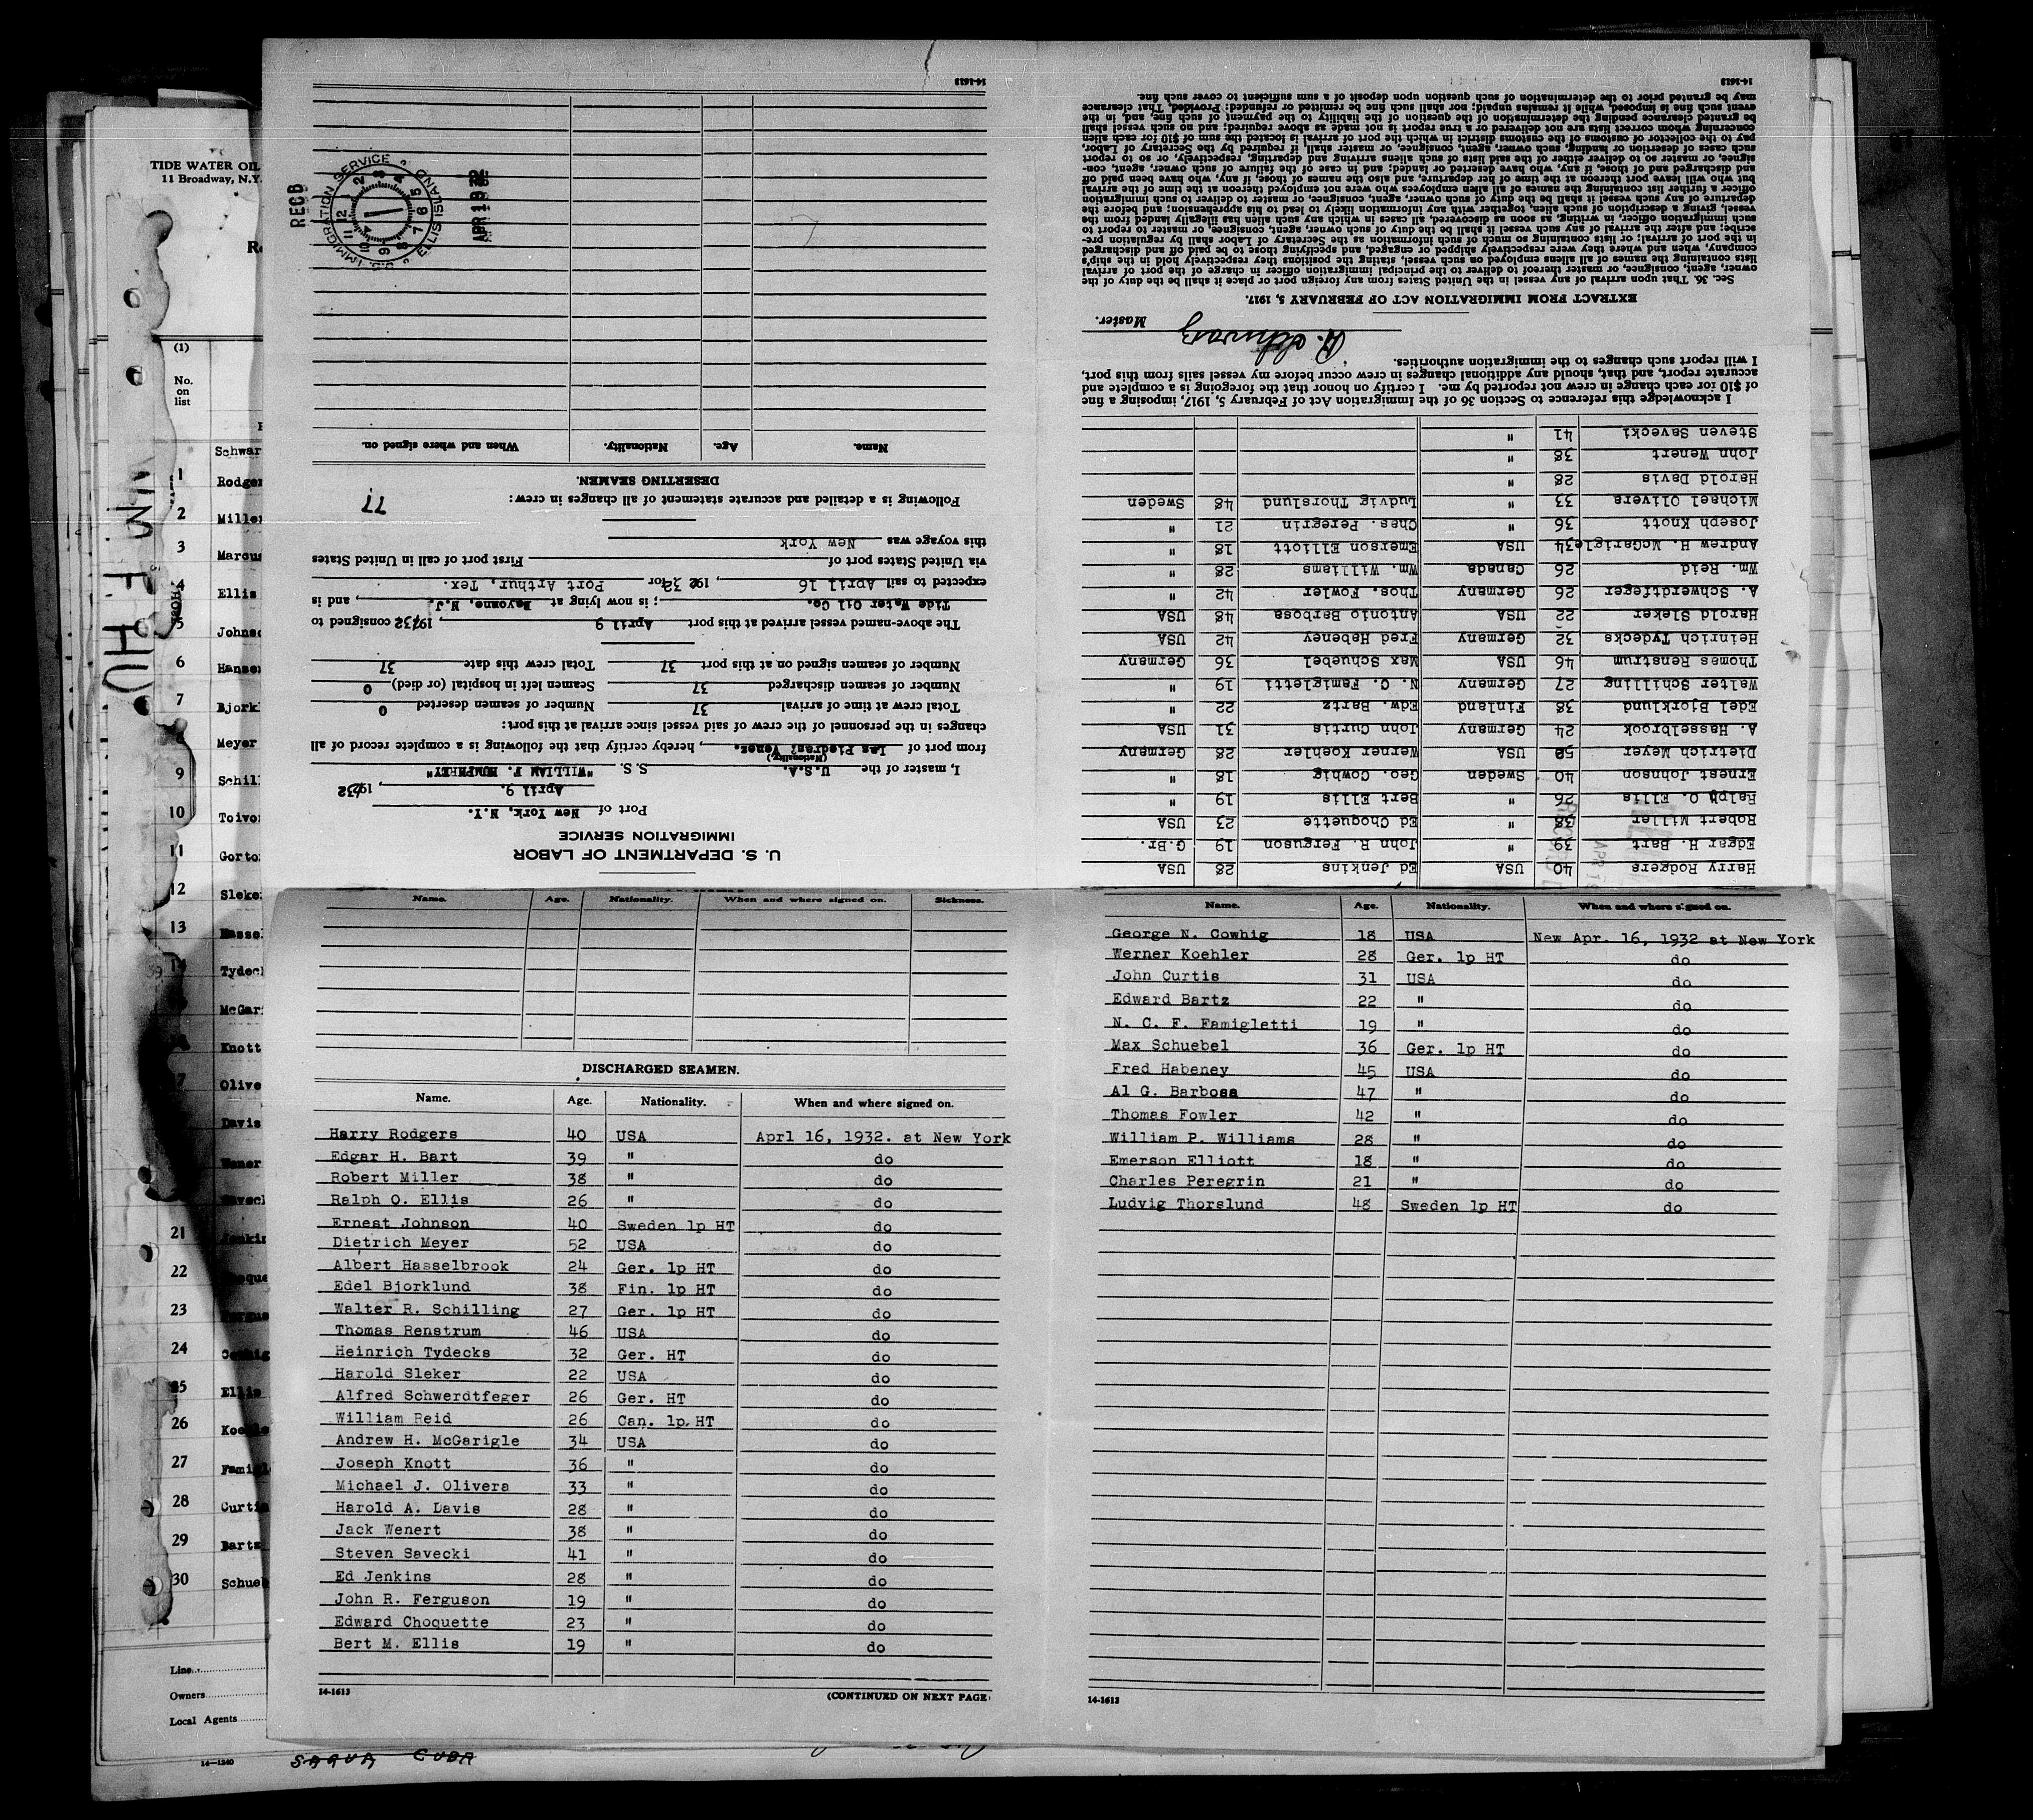 TIDE WATER OIL
11 Broadway, N.Y.
(1)
No.
on
list
Schwar
1 Rodger
2 Miller
3 Marcus
4 Ellis
5 Johnso
6 Hansen
7 Bjork
Meyer
9 Schil
10 Toivo
11 Gorto
12 Sleke
13 Hassel
14 Tydec
McGar
Knott
17 Olive
Davis
21 Jenkin
22
23
24 Cowhig
25 Ellis
26 Koehle
27 Famigl
28 Curtis
29 Bartz
30 Schueb
Line
Owners
Local Agents
14—1240
SAGUA CUBA
U. S. DEPARTMENT OF LABOR
IMMIGRATION SERVICE
Port of New York, N.Y.
April 9, 1932
I, master of the U.S.A. S.S. "WILLIAM F. HUMPHREY"
(Nationality)
from port of Las Piedras, Venez., hereby certify that the following is a complete record of all
changes in the personnel of the crew of said vessel since arrival at this port:
Total crew at time of arrival 37 Number of seamen deserted 0
Number of seamen discharged 37 Seamen left in hospital (or died) 0
Number of seamen signed on at this port 37 Total crew this date 37
The above-named vessel arrived at this port April 9, 1932 consigned to
Tide Water Oil Co.; is now lying at Bayonne, N.J., and is
expected to sail April 16, 1932 for Port Arthur, Tex.
via United States port of First port of call in United States
this voyage was New York
Following is a detailed and accurate statement of all changes in crew:
77
DESERTING SEAMEN.
Name. Age. Nationality. When and where signed on.
RECD
U.S. IMMIGRATION SERVICE ELLIS ISLAND
APR 18 1932
14-1613
Harry Rodgers 40 USA Ed Jenkins 28 USA
Edgar H. Bart 39 " John R. Ferguson 19 G.Br.
Robert Miller 38 " Ed Choquette 23 USA
Ralph O. Ellis 26 " Bert Ellis 19 "
Ernest Johnson 40 Sweden Geo. Cowhig 18 "
Dietrich Meyer 52 USA Werner Koehler 28 Germany
A. Hasselbrook 24 Germany John Curtis 31 USA
Edel Bjorklund 38 Finland Edw. Bartz 22 "
Walter Schilling 27 Germany N. C. Famigletti 19 "
Thomas Renstrum 46 USA Max Schuebel 36 Germany
Heinrich Tydecks 32 Germany Fred Habeney 42 USA
Harold Sleker 22 USA Antonio Barbosa 48 USA
A. Schwerdtfeger 26 Germany Thos. Fowler 42 "
Wm. Reid 26 Canada Wm. Williams 28 "
Andrew H. McGarigle 34 USA Emerson Elliott 18 "
Joseph Knott 36 " Chas. Peregrin 21 "
Michael Olivera 33 " Ludvig Thorslund 48 Sweden
Harold Davis 28 "
John Wenert 38 "
Steven Savecki 41 "
I acknowledge this reference to Section 36 of the Immigration Act of February 5, 1917, imposing a fine
of $10 for each change in crew not reported by me. I certify on honor that the foregoing is a complete and
accurate report, and that, should any additional changes in crew occur before my vessel sails from this port,
I will report such changes to the immigration authorities.
Schwarz Master.
EXTRACT FROM IMMIGRATION ACT OF FEBRUARY 5, 1917.
Sec. 36. That upon arrival of any vessel in the United States from any foreign port or place it shall be the duty of the
owner, agent, consignee, or master thereof to deliver to the principal immigration officer in charge of the port of arrival
lists containing the names of all aliens employed on such vessel, stating the positions they respectively hold in the ship's
company, when and where they were respectively shipped or engaged, and specifying those to be paid off and discharged
in the port of arrival; or lists containing so much of such information as the Secretary of Labor shall by regulation pre-
scribe; and after the arrival of any such vessel it shall be the duty of such owner, agent, consignee, or master to report to
such immigration officer, in writing, as soon as discovered, all cases in which any such alien has illegally landed from the
vessel, giving a description of such alien, together with any information likely to lead to his apprehension; and before the
departure of any such vessel it shall be the duty of such owner, agent, consignee, or master to deliver to such immigration
officer a further list containing the names of all alien employees who were not employed thereon at the time of the arrival
but who will leave port thereon at the time of her departure, and also the names of those, if any, who have been paid off
and discharged and of those, if any, who have deserted or landed; and in case of the failure of such owner, agent, con-
signee, or master so to deliver either of the said lists of such aliens arriving and departing, respectively, or so to report
such cases of desertion or landing, such owner, agent, consignee, or master shall, if required by the Secretary of Labor,
pay to the collector of customs of the customs district in which the port of arrival is located the sum of $10 for each alien
concerning whom correct lists are not delivered or a true report is not made as above required; and no such vessel shall
be granted clearance pending the determination of the question of the liability to the payment of such fine, and, in the
event such fine is imposed, while it remains unpaid; nor shall such fine be remitted or refunded: Provided, That clearance
may be granted prior to the determination of such question upon deposit of a sum sufficient to cover such fine.
14-1613
Name. Age. Nationality. When and where signed on. Sickness.
DISCHARGED SEAMEN.
Name. Age. Nationality. When and where signed on.
Harry Rodgers 40 USA Aprl 16, 1932. at New York
Edgar H. Bart 39 " do
Robert Miller 38 " do
Ralph O. Ellis 26 " do
Ernest Johnson 40 Sweden lp HT do
Dietrich Meyer 52 USA do
Albert Hasselbrook 24 Ger. lp HT do
Edel Bjorklund 38 Fin. lp HT do
Walter R. Schilling 27 Ger. lp HT do
Thomas Renstrum 46 USA do
Heinrich Tydecks 32 Ger. HT do
Harold Sleker 22 USA do
Alfred Schwerdtfeger 26 Ger. HT do
William Reid 26 Can. lp. HT do
Andrew H. McGarigle 34 USA do
Joseph Knott 36 " do
Michael J. Olivera 33 " do
Harold A. Davis 28 " do
Jack Wenert 38 " do
Steven Savecki 41 " do
Ed Jenkins 28 " do
John R. Ferguson 19 " do
Edward Choquette 23 " do
Bert M. Ellis 19 " do
14-1613 (CONTINUED ON NEXT PAGE)
Name. Age. Nationality. When and where signed on.
George N. Cowhig 18 USA New Apr. 16, 1932 at New York
Werner Koehler 28 Ger. lp HT do
John Curtis 31 USA do
Edward Bartz 22 " do
N. C. F. Famigletti 19 " do
Max Schuebel 36 Ger. lp HT do
Fred Habeney 45 USA do
Al G. Barbosa 47 " do
Thomas Fowler 42 " do
William P. Williams 28 " do
Emerson Elliott 18 " do
Charles Peregrin 21 " do
Ludvig Thorslund 48 Sweden lp HT do
14-1613